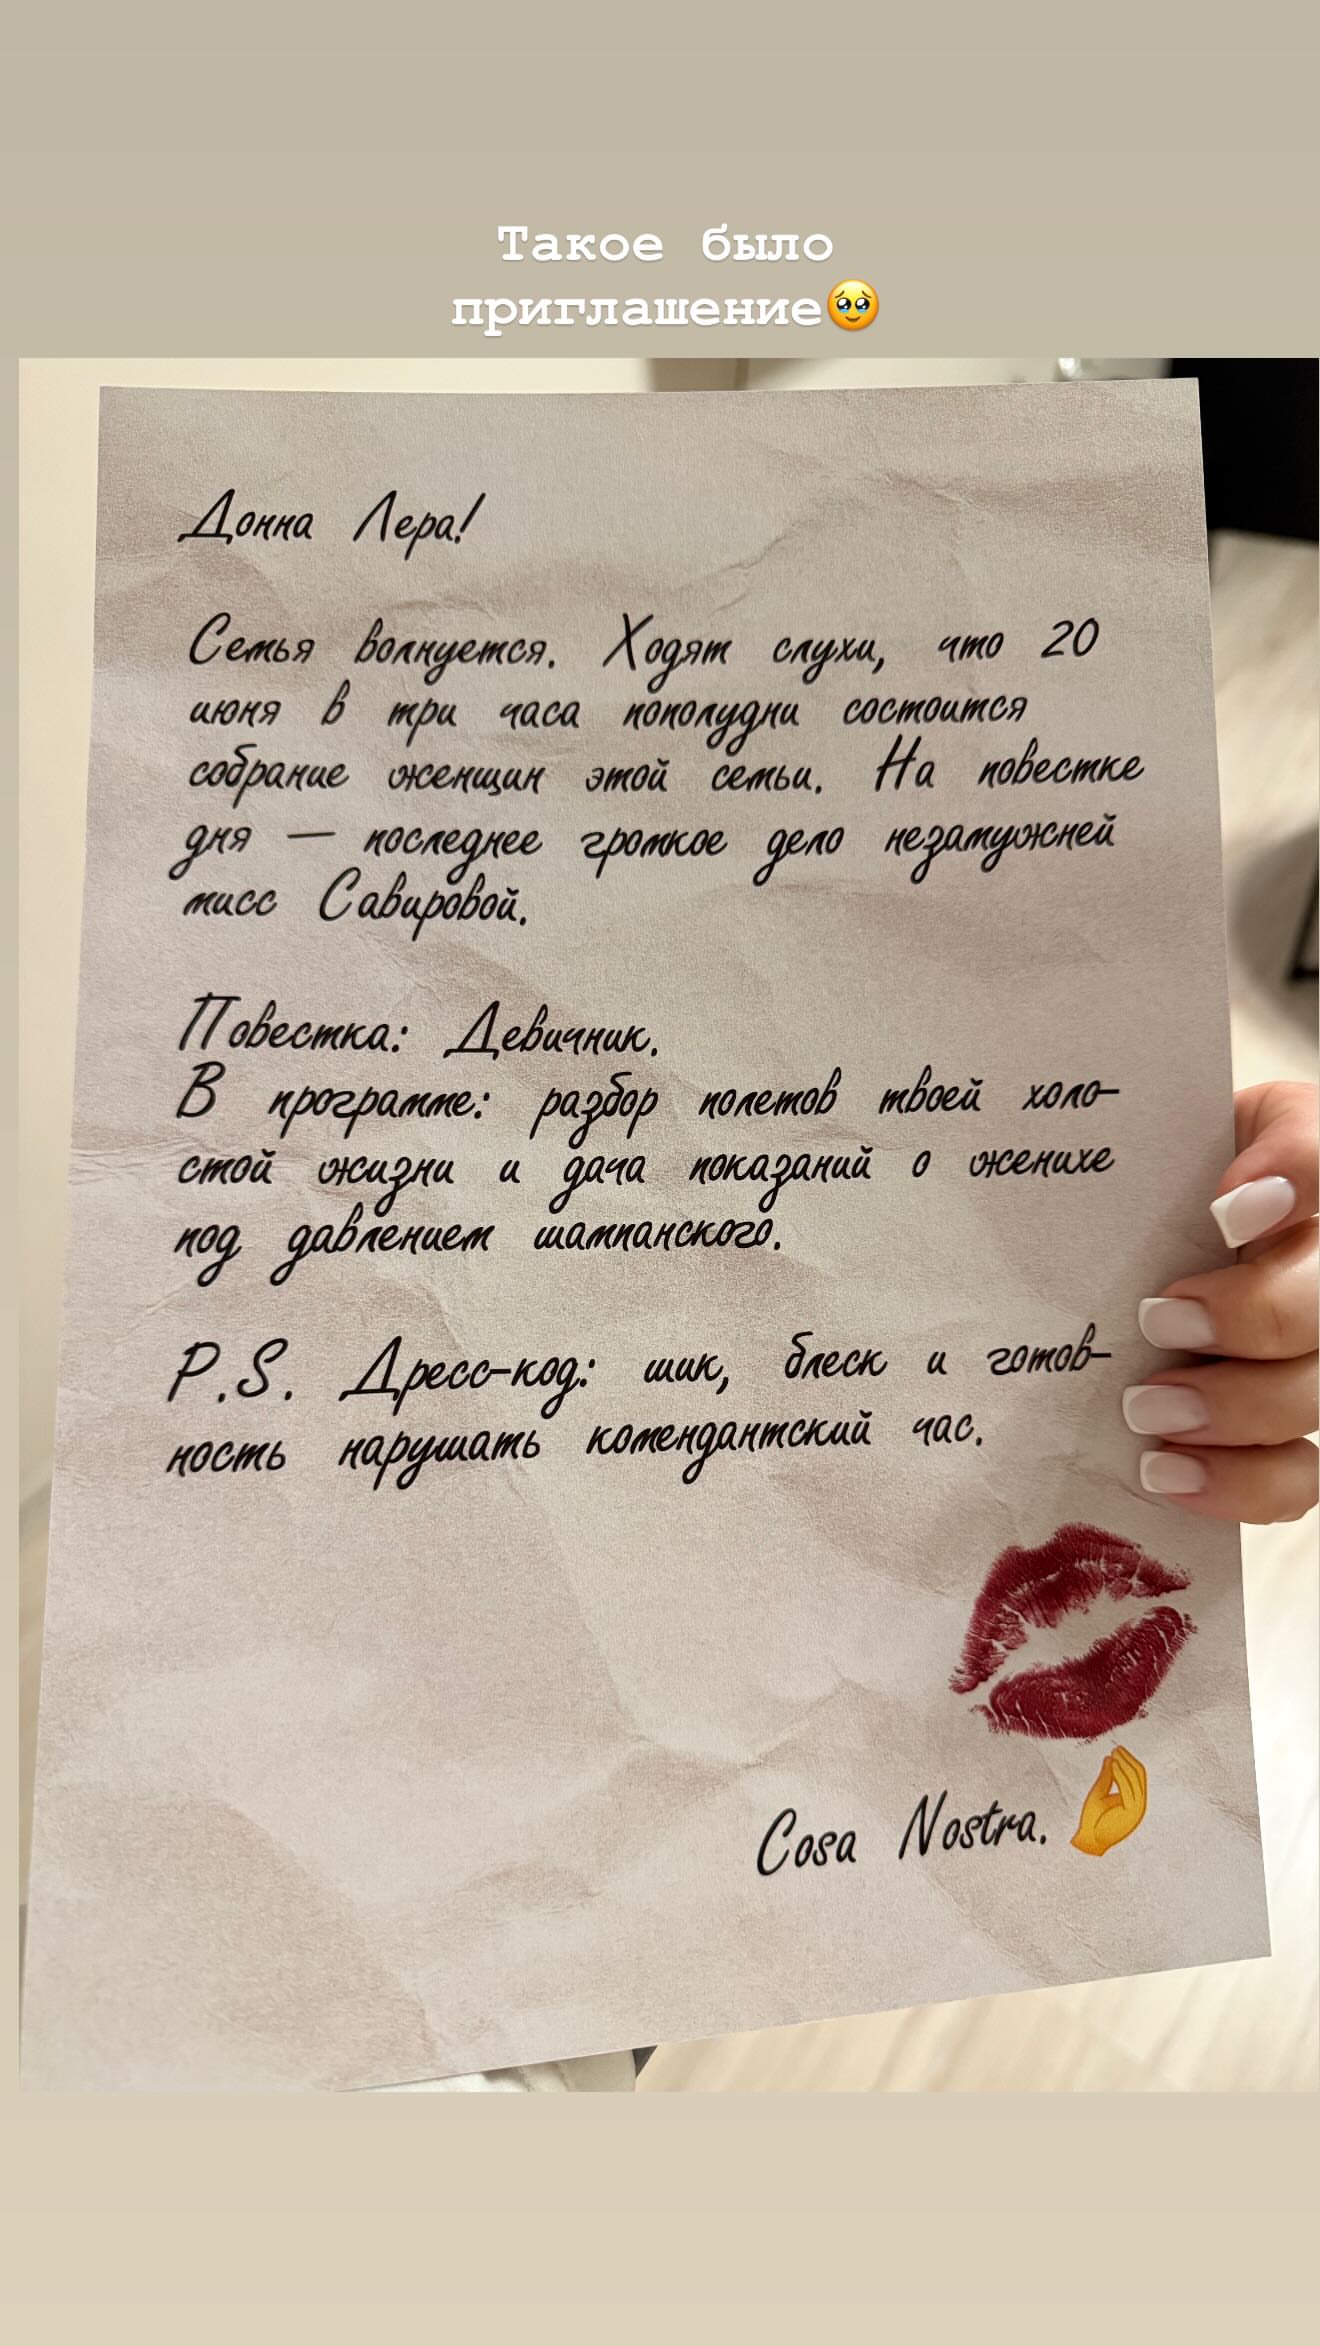 Такое было
приглашение🥹
Донна Лера!
Семья волнуется. Ходят слухи, что 20
июня в три часа пополудни состоится
собрание женщин этой семьи. На повестке
дня — последнее громкое дело незамужней
мисс Савировой.
Повестка: Девичник.
В программе: разбор полетов твоей холо-
стой жизни и дача показаний о женихе
под давлением шампанского.
P.S. Дресс-код: шик, блеск и готов-
ность нарушать комендантский час.
Cosa Nostra.